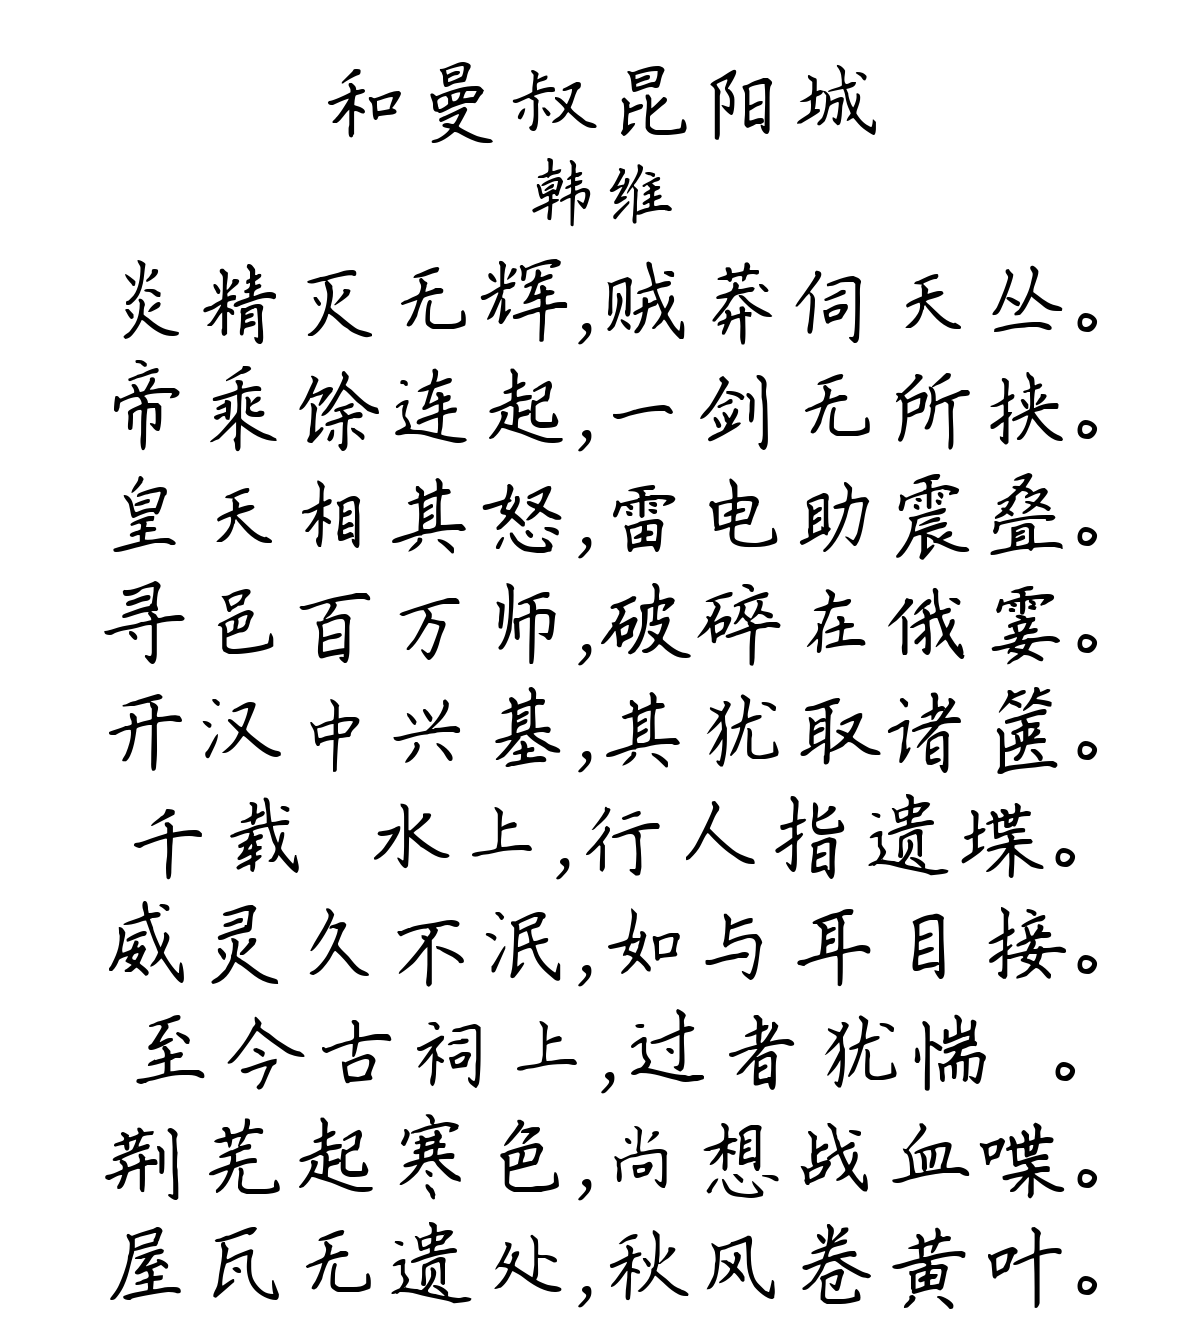 和曼叔昆阳城
韩维
炎精灭无辉,贼莽伺天丛。
帝乘馀连起,一剑无所挟。
皇天相其怒,雷电助震叠。
寻邑百万师,破碎在俄霎。
开汉中兴基,其犹取诸箧。
千载 水上,行人指遗堞。
威灵久不泯,如与耳目接。
至今古祠上,过者犹惴 。
荆芜起寒色,尚想战血喋。
屋瓦无遗处,秋风卷黄叶。